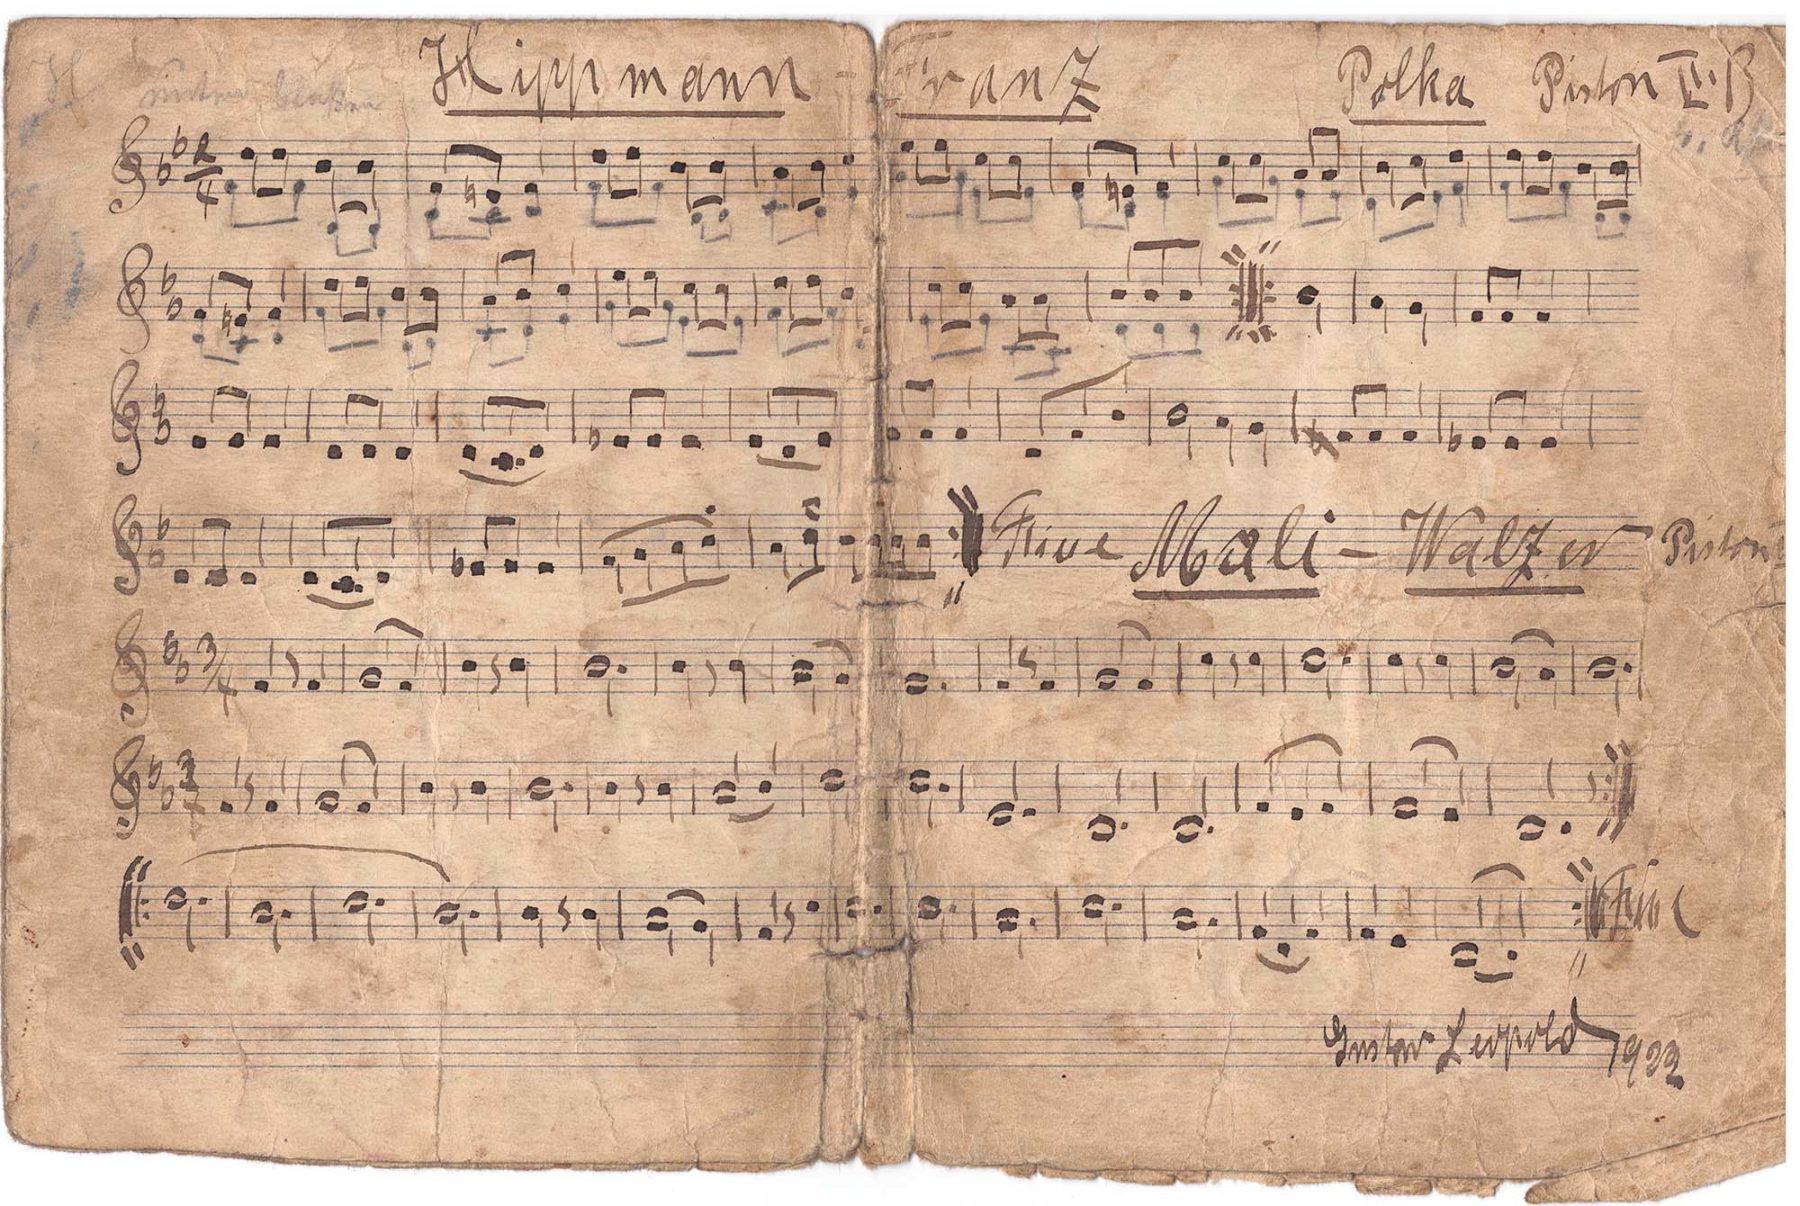 Hippmann - Franz Polka Piston II. B
2/4
Fine Mali - Walzer Piston
3/4
3/4
Fine
Gustav Leopold 1922